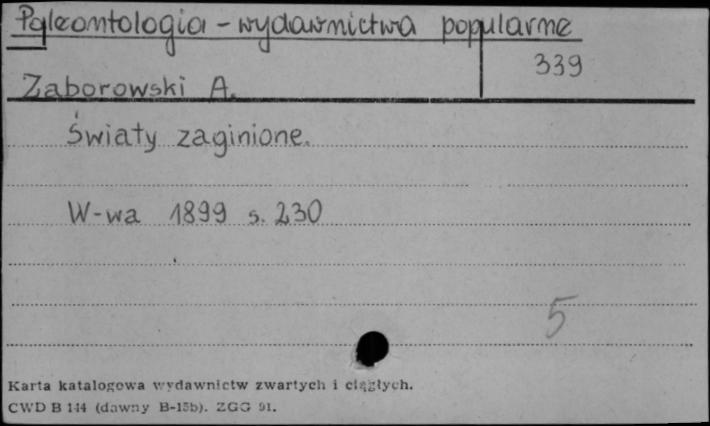 Paleontologia - wydawnictwa popularne
339
Zaborowski A.
Światy zaginione.
W-wa 1899 s. 230
5
Karta katalogowa wydawnictw zwartych i ciągłych.
CWD B 144 (dawny B-15b). ZGG 91.